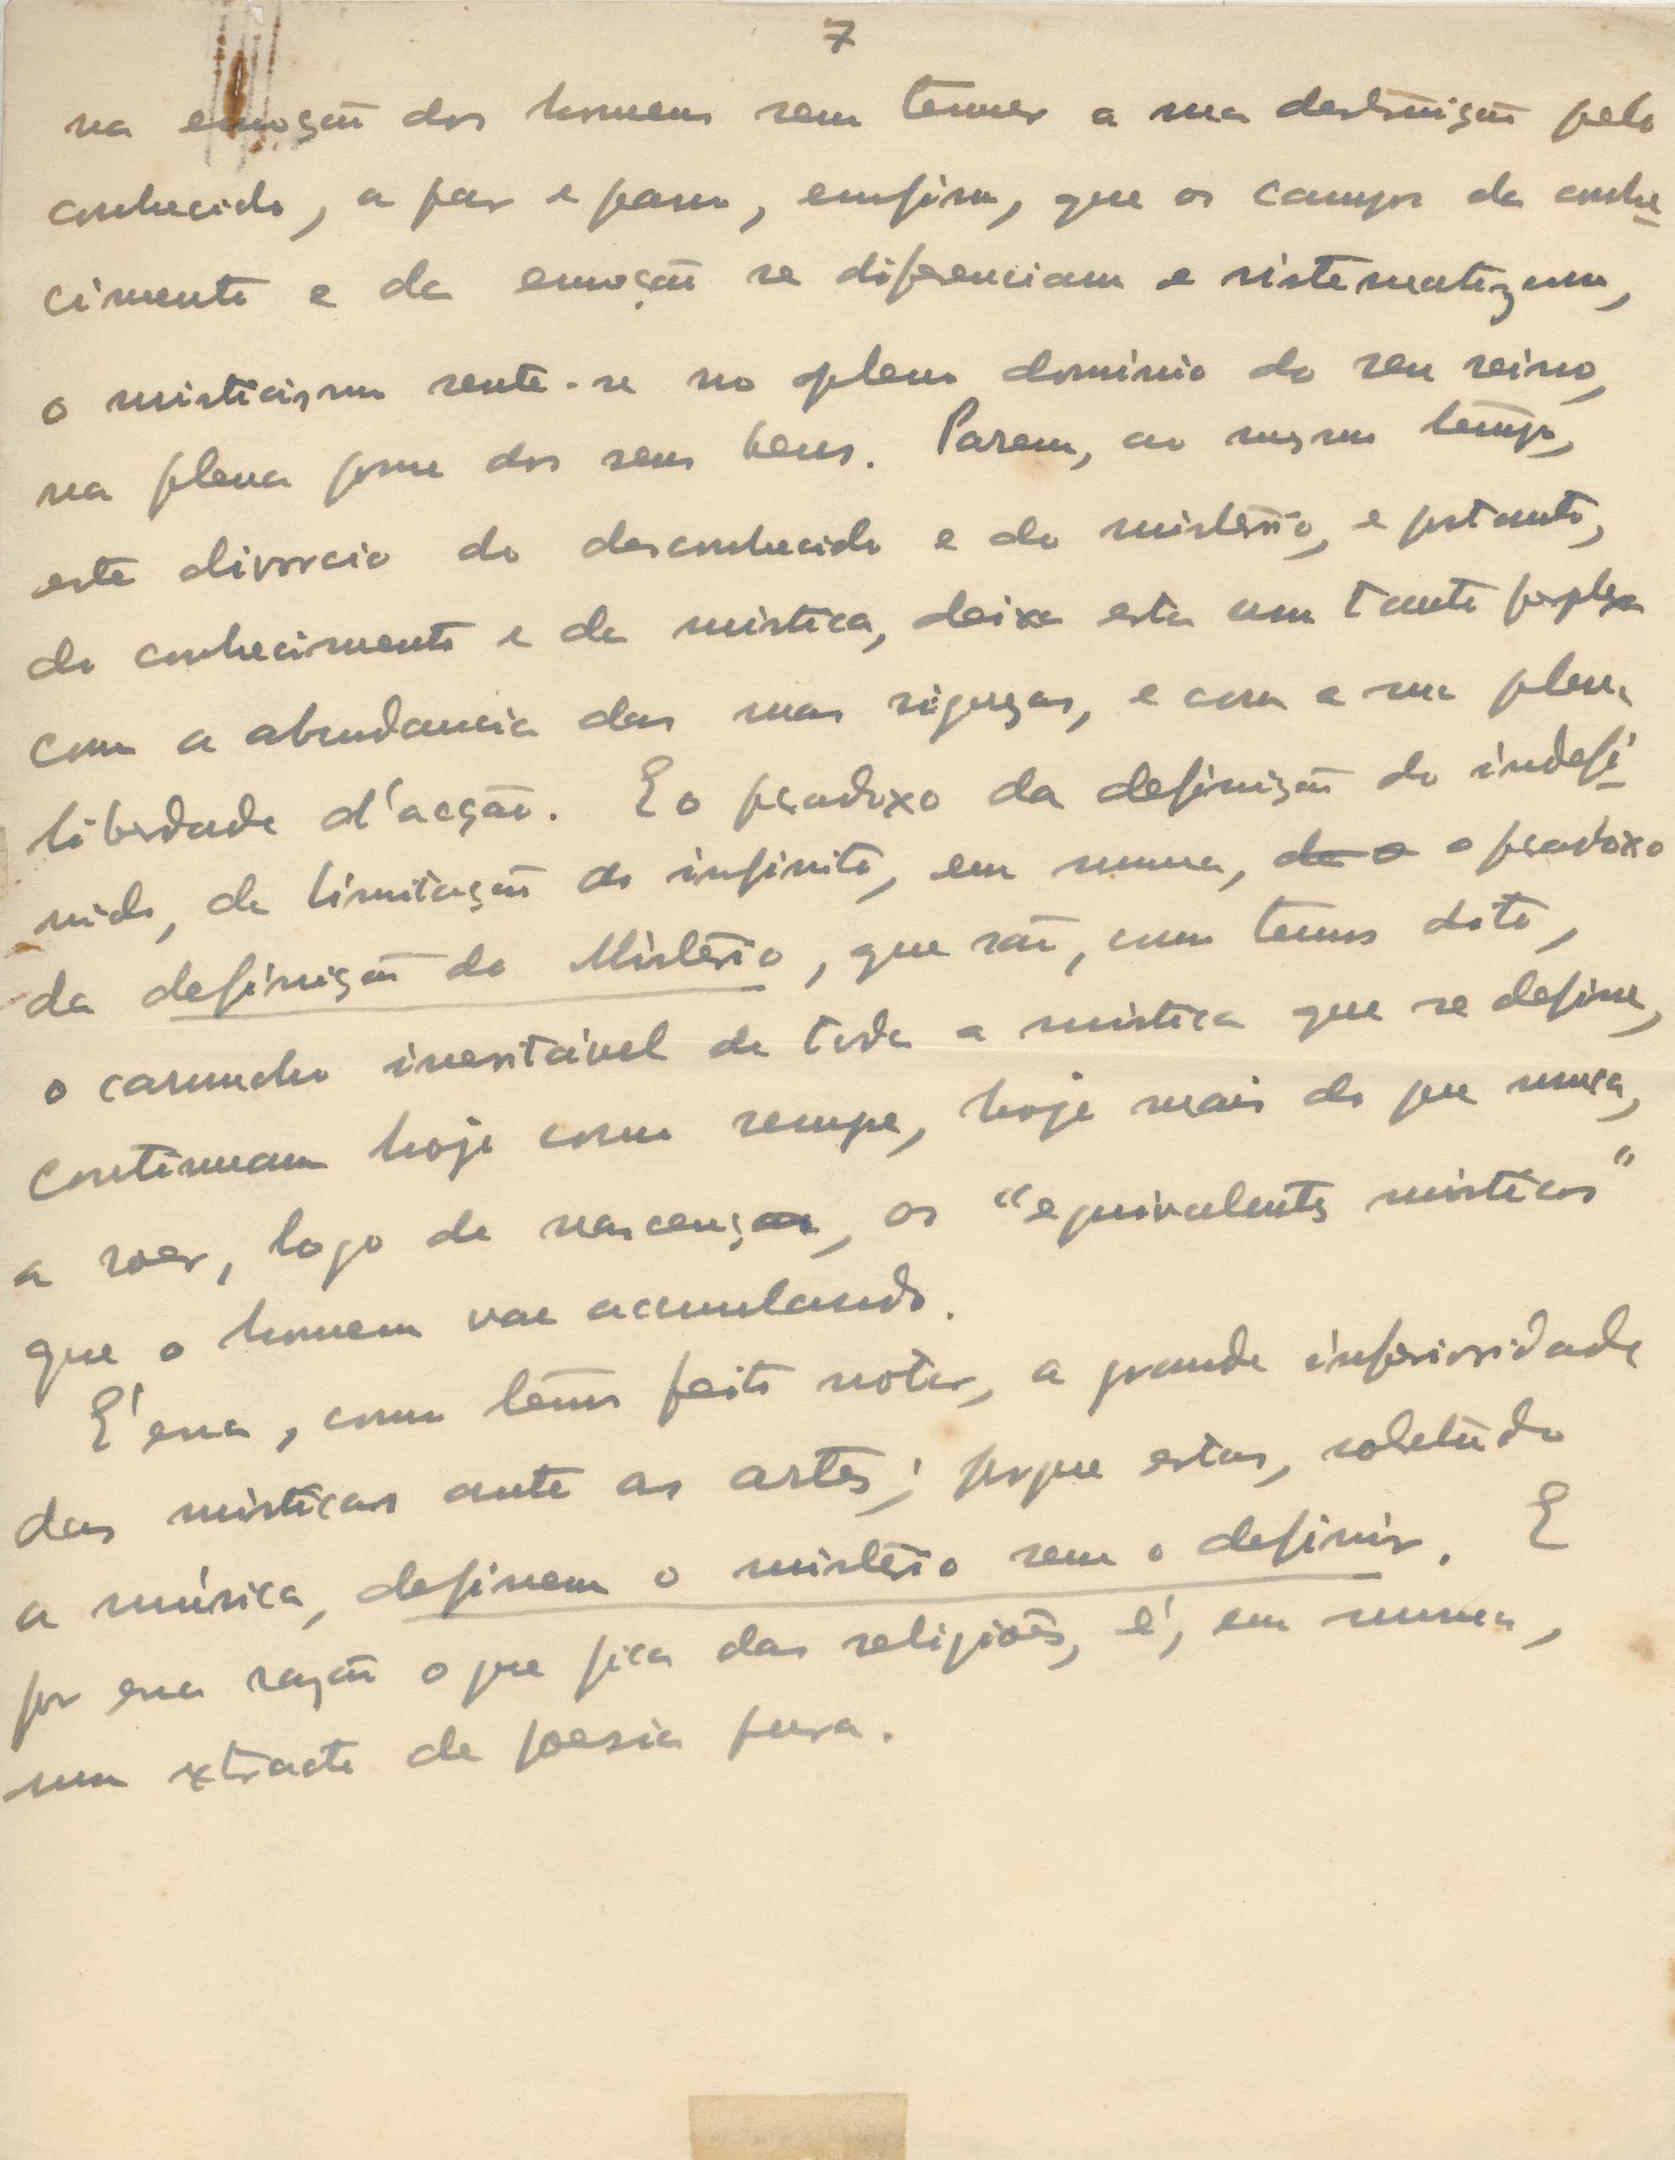 7
na emoção dos homens sem temer a sua destruição pelo
conhecido, a par e passo, emfim, que os campos do conhe
cimento e da emoção se diferenciam e sistematizam,
o misticismo sente-se no pleno dominio do seu reino,
na plena posse dos seus bens. Parem, ao mesmo tempo,
este divorcio do desconhecido e do mistério, e portanto,
do conhecimento e da mistica, deixa esta um tanto perplexa
com a abundancia das suas riquezas, e com a sua plena
liberdade d'acção. E o paradoxo da definição do indefi
nido, da limitação do infinito, em suma, da o o paradoxo
da definição do Mistério, que são, como temos dito,
o caruncho inevitável de toda a mistica que se define,
continuam hoje como sempre, hoje mais do que nunca,
a roer, logo de nascença, os "equivalentes misticos"
que o homem vae acumulando.
É essa, como temos feito notar, a grande inferioridade
das misticas ante as artes; porque estas, sobretudo
a música, definem o mistério sem o definir. E
por essa razão o que fica das religiões, é, em suma,
um extracto de poesia pura.